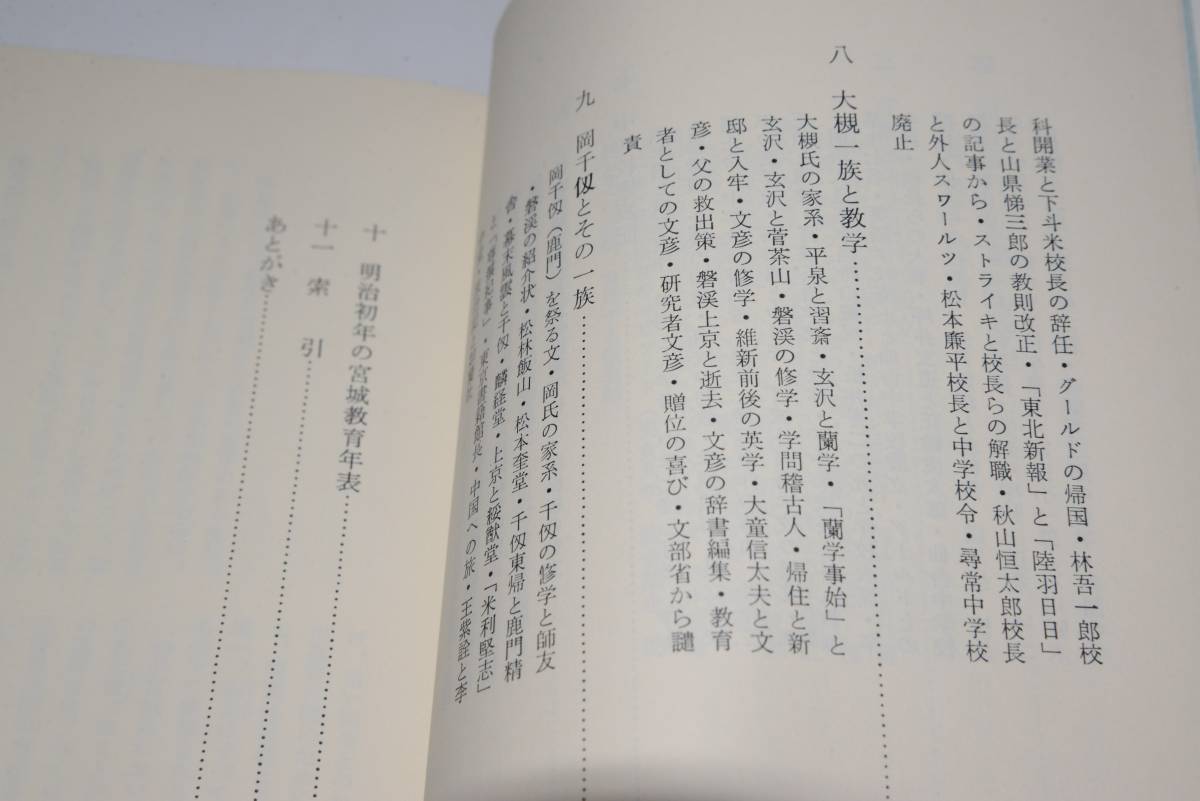 科開業と下斗米校長の辞任・グールドの帰国・林吾一郎校
長と山県悌三郎の教則改正・「東北新報」と「陸羽日日」
の記事から・ストライキと校長らの解職・秋山恒太郎校長
と外人スワールツ・松本廉平校長と中学校令・尋常中学校
廃止
八 大槻一族と教学…………………
大槻氏の家系・平泉と習斎・玄沢と蘭学・「蘭学事始」と
玄沢・玄沢と菅茶山・磐渓の修学・学問稽古人・帰住と新
邸と入牢・文彦の修学・維新前後の英学・大童信太夫と文
彦・父の救出策・磐渓上京と逝去・文彦の辞書編集・教育
者としての文彦・研究者文彦・贈位の喜び・文部省から譴
責
九 岡千仭とその一族…………………
岡千仭（鹿門）を祭る文・岡氏の家系・千仭の修学と師友
・磐渓の紹介状・松林飯山・松本奎堂・千仭東帰と鹿門精
舎・幕末風雲と千仭・麟経堂・上京と綏猷堂・「米利堅志」
と「尊攘紀事」・東京書籍館長・中国への旅・王紫詮と李
十 明治初年の宮城教育年表…………………
十一 索 引…………………
あとがき…………………